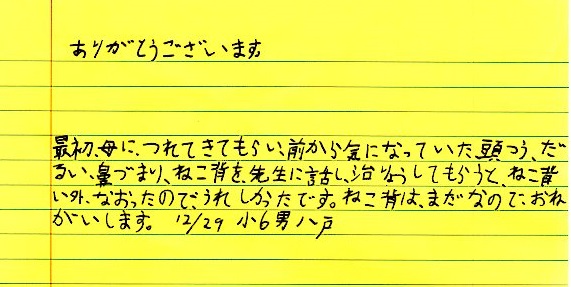 ありがとうございます。
最初、母に、つれてきてもらい、前から気になっていた、頭つう、だ
るい、鼻づまり、ねこ背を、先生に話し、治りょうしてもらうと、ねこ背
い外、なおったので、うれしかったです。ねこ背は、まだなので、おね
がいします。 12/29 小6男 八戸